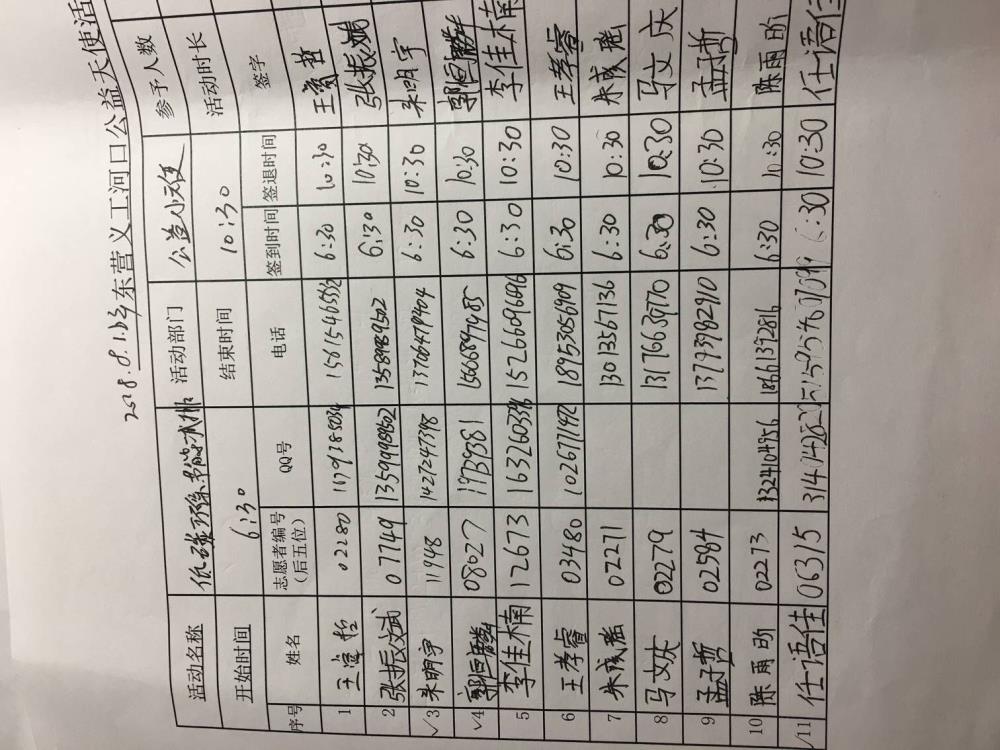 2018.8.1 东营义工河口公益天使活
活动名称 低碳环保 节能减排 活动部门 公益小天使 参予人数
开始时间 6:30 结束时间 10:30 活动时长
序号 姓名 志愿者编号（后五位） QQ号 电话 签到时间 签退时间 签字
1 02280 6:30 10:30
2 张振斌 07749 13589989502 6:30 10:30 张振斌
√3 朱明宇 11948 1427247398 13706479404 6:30 10:30 朱明宇
√4 郭恒麟 08027 19739381 6:30 10:30 郭恒麟
5 李佳楠 12673 1632603396 15266096696 6:30 10:30 李佳楠
6 王孝睿 03480 1026771472 18953056909 6:30 10:30 王孝睿
7 朱成瑶 02271 13013567136 6:30 10:30 朱成瑶
8 马文庆 02279 13176639770 6:30 10:30 马文庆
9 孟子哲 02584 13793982910 6:30 10:30 孟子哲
10 陈雨昕 02273 1324104956 18661392816 6:30 10:30 陈雨昕
√11 任语佳 06315 6:30 10:30 任语佳